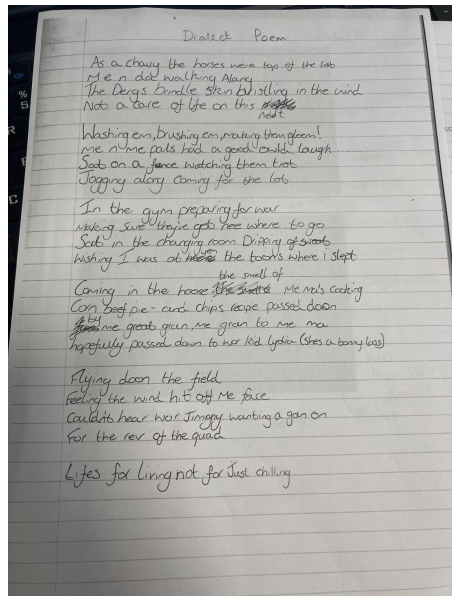 Dialect Poem
As a chavy the horses were top of the list
Me n dad walking Alang
The Dergs brindle skin bristling in the wind
Not a care of life on this
next
Washing em, brushing em, making them gleem!
Me n me pals had a good auld laugh
Saat on a fence watching them trot
Jogging along coming for the lot
In the gym preparing for war
Making sure they've got nee where to go
Saat in the changing room Dripping of sweat
Wishing I was at yem the toon's where i slept
the smell of
Coming in the hoose Me ma's cooking
Corn beef pie and chips recipe passed doon
by me great gran, me gran to me ma
hopefully passed down to wor kid lydia (shes a bonny lass)
Flying doon the field
Feeling the wind hit off me face
Couldn't hear wor Jimmy wanting a gan on
For the rev of the quad
Lifes for living not for Just chilling
%
5
R
C